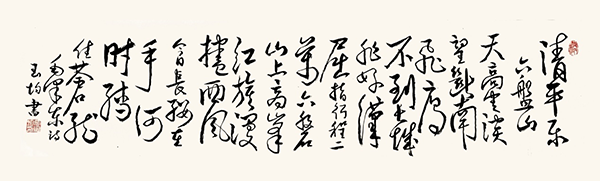 清平乐
六盘山
天高云淡
望斷南
飞雁
不到长城
非好漢
屈指行程二
万六盘
山上高峰
江旗漫
捲西风
今日長缨在
手何
时缚
住苍龙
毛泽东词
玉均书